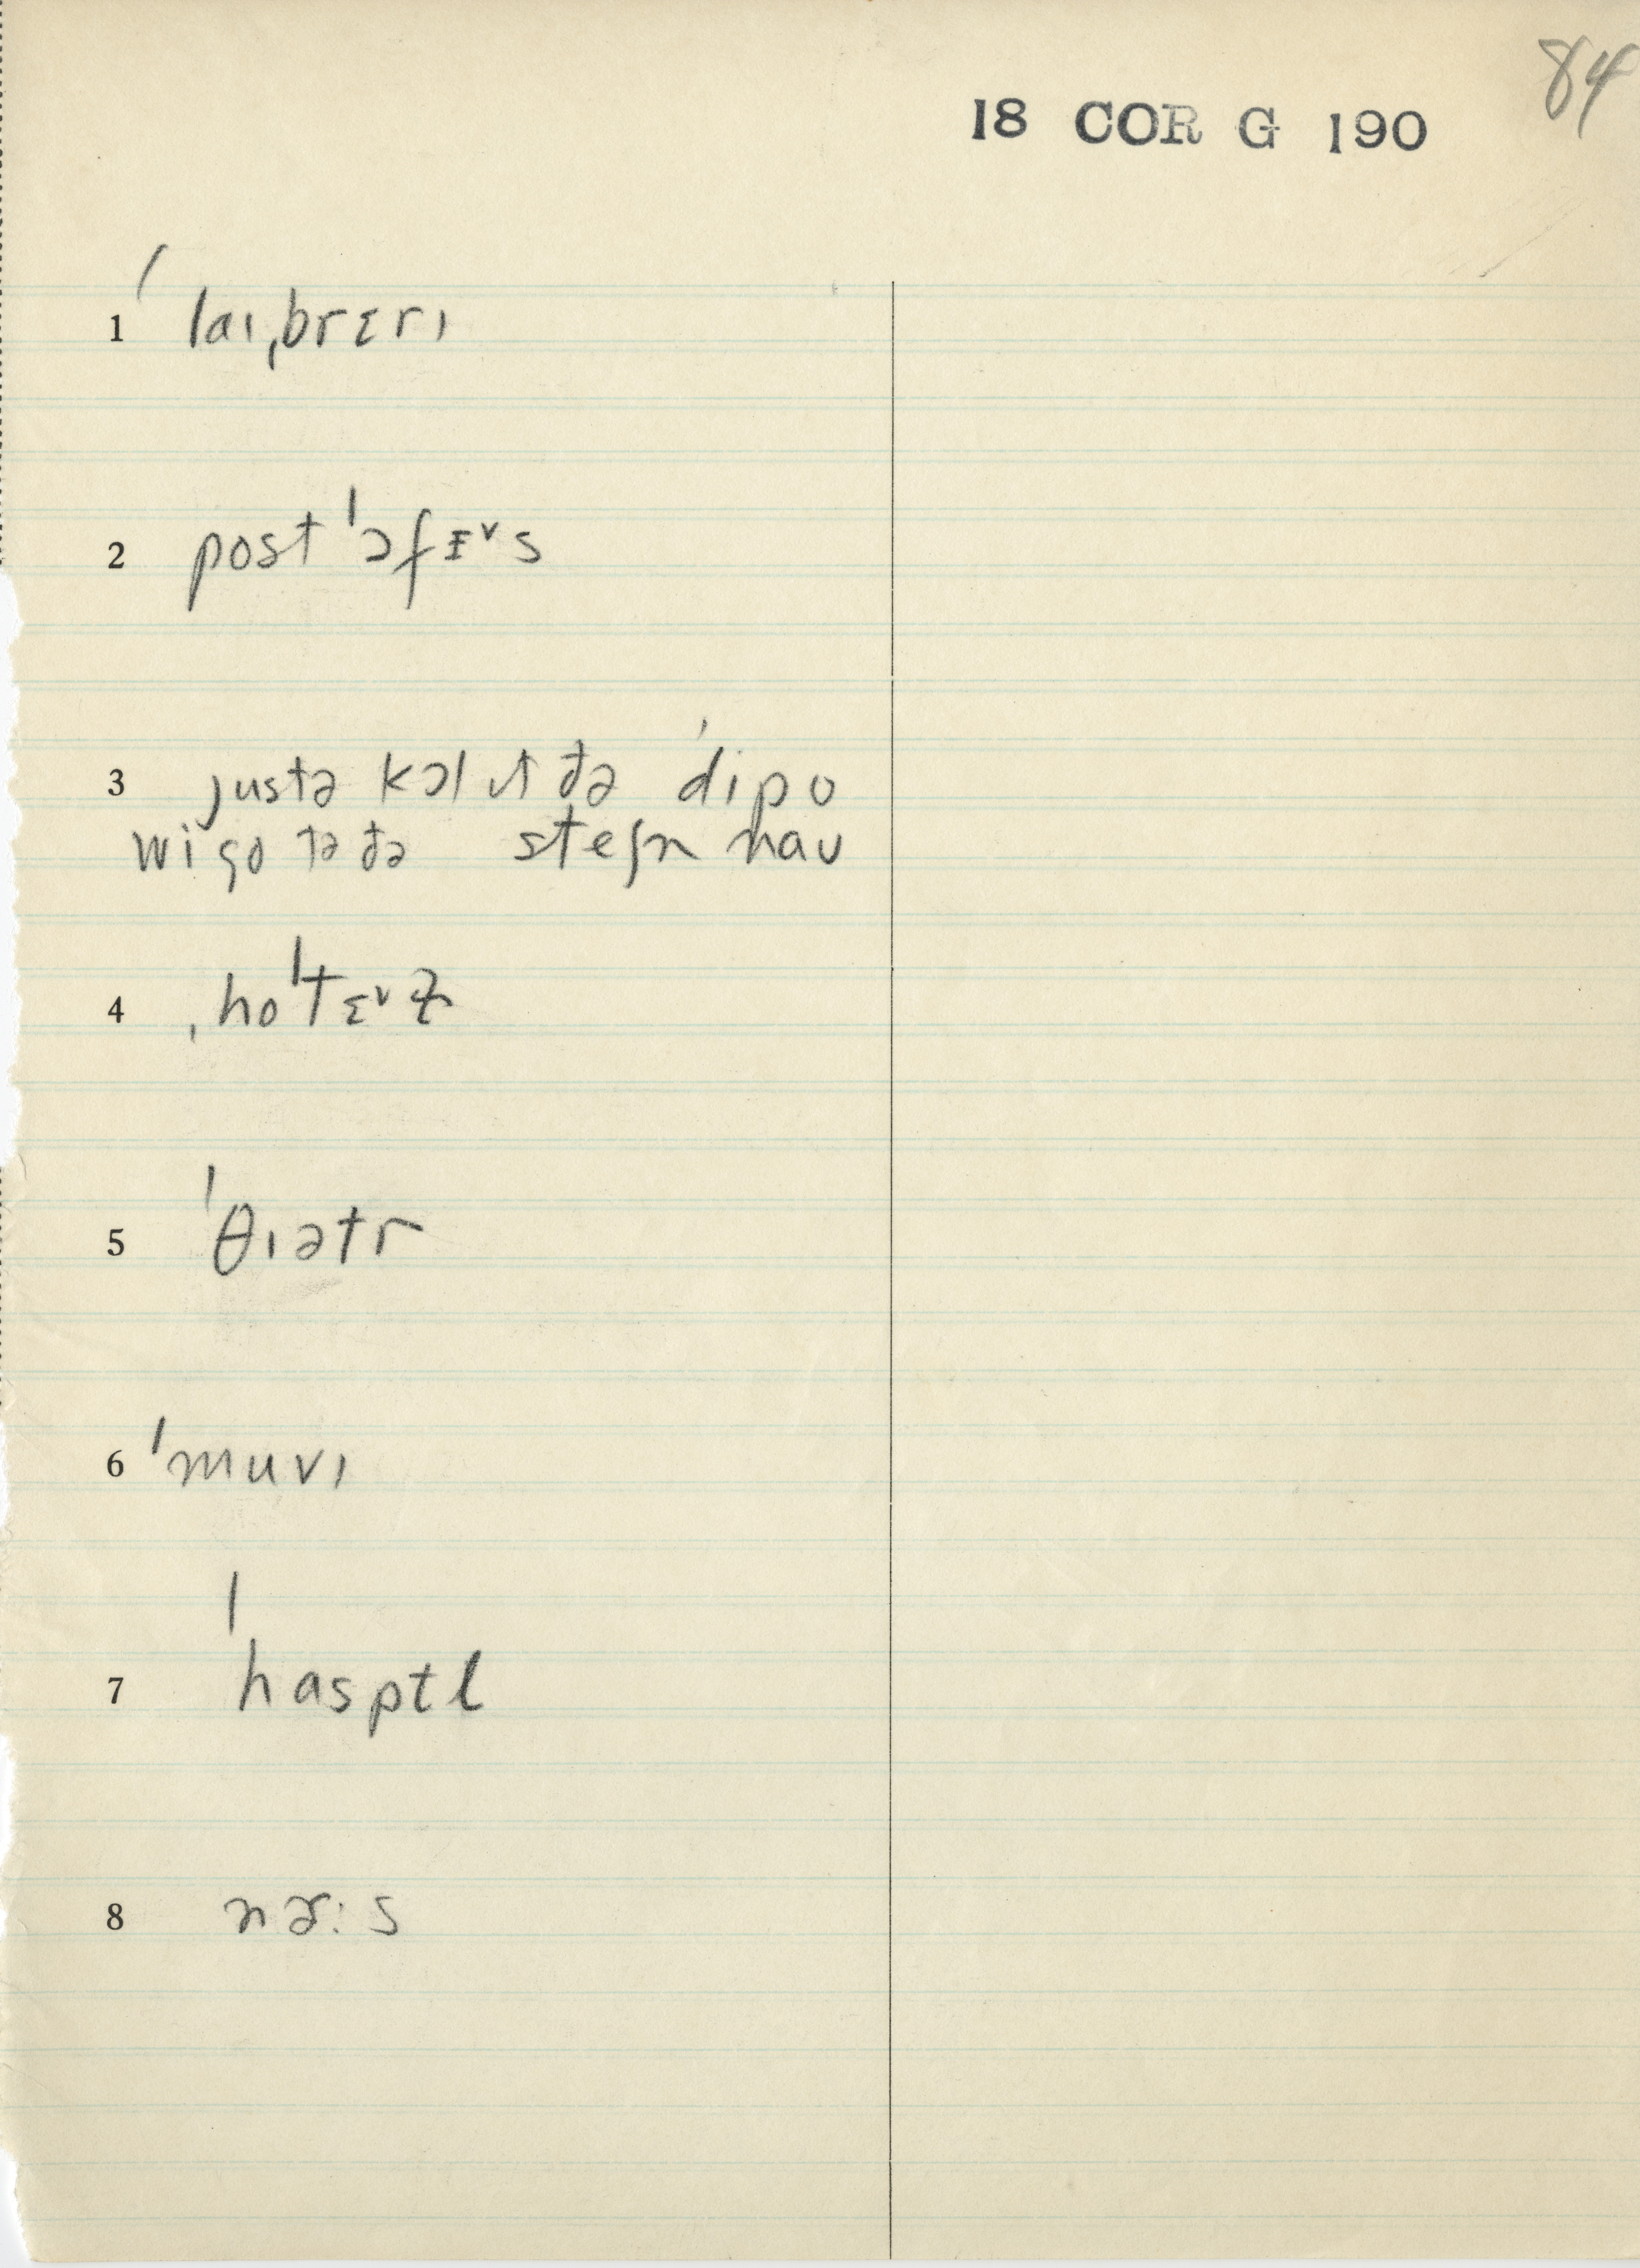 84
18 COR G 190
1 ˈlaɪˌbrɛrɪ
2 postˈɔfɪ˅s
3 justə kɔl ɪt ðə ˈdipo
wi go tə ðə steʃn naʊ
4 ˌhoˈtɛ˅ɫ
5 ˈθɪətr
6 ˈmuvɪ
7 ˈhasptl
8 nɚ:s